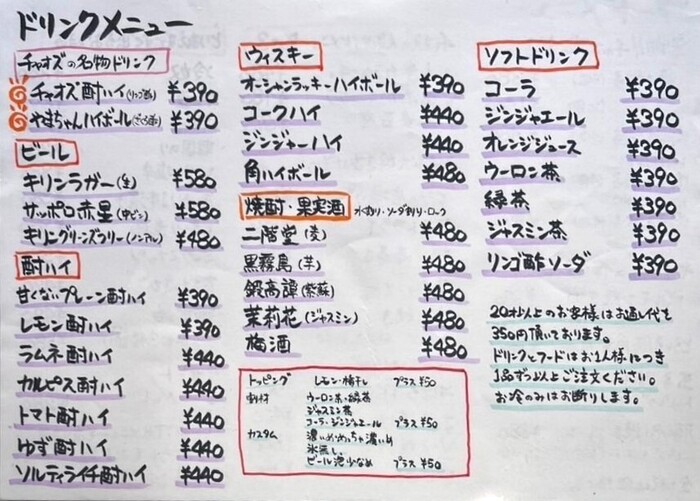 ドリンクメニュー
チャオズの名物ドリンク
チャオズ酎ハイ(リンゴ酢) ¥390
やまちゃんハイボール ¥390
ビール
キリンラガー(生) ¥580
サッポロ赤星(中ビン) ¥580
キリングリーンズフリー(ノンアル) ¥480
酎ハイ
甘くないプレーン酎ハイ ¥390
レモン酎ハイ ¥390
ラムネ酎ハイ ¥440
カルピス酎ハイ ¥440
トマト酎ハイ ¥440
ゆず酎ハイ ¥440
ソルティライチ酎ハイ ¥440
ウィスキー
オーシャンラッキーハイボール ¥390
コークハイ ¥440
ジンジャーハイ ¥440
角ハイボール ¥480
焼酎・果実酒 水割り・ソーダ割り・ロック
二階堂(麦) ¥480
黒霧島(芋) ¥480
鍛高譚(紫蘇) ¥480
茉莉花(ジャスミン) ¥480
梅酒 ¥480
トッピング レモン・梅干し プラス¥50
割材 ウーロン茶・緑茶
ジャスミン茶
コーラ・ジンジャエール プラス¥50
カスタム 濃いめ・めっちゃ濃いめ
氷無し
ビール泡少なめ プラス¥50
ソフトドリンク
コーラ ¥390
ジンジャエール ¥390
オレンジジュース ¥390
ウーロン茶 ¥390
緑茶 ¥390
ジャスミン茶 ¥390
リンゴ酢ソーダ ¥390
20才以上のお客様はお通し代を
350円頂いております。
ドリンクとフードはお1人様につき
1品ずつ以上ご注文ください。
お冷のみはお断りします。